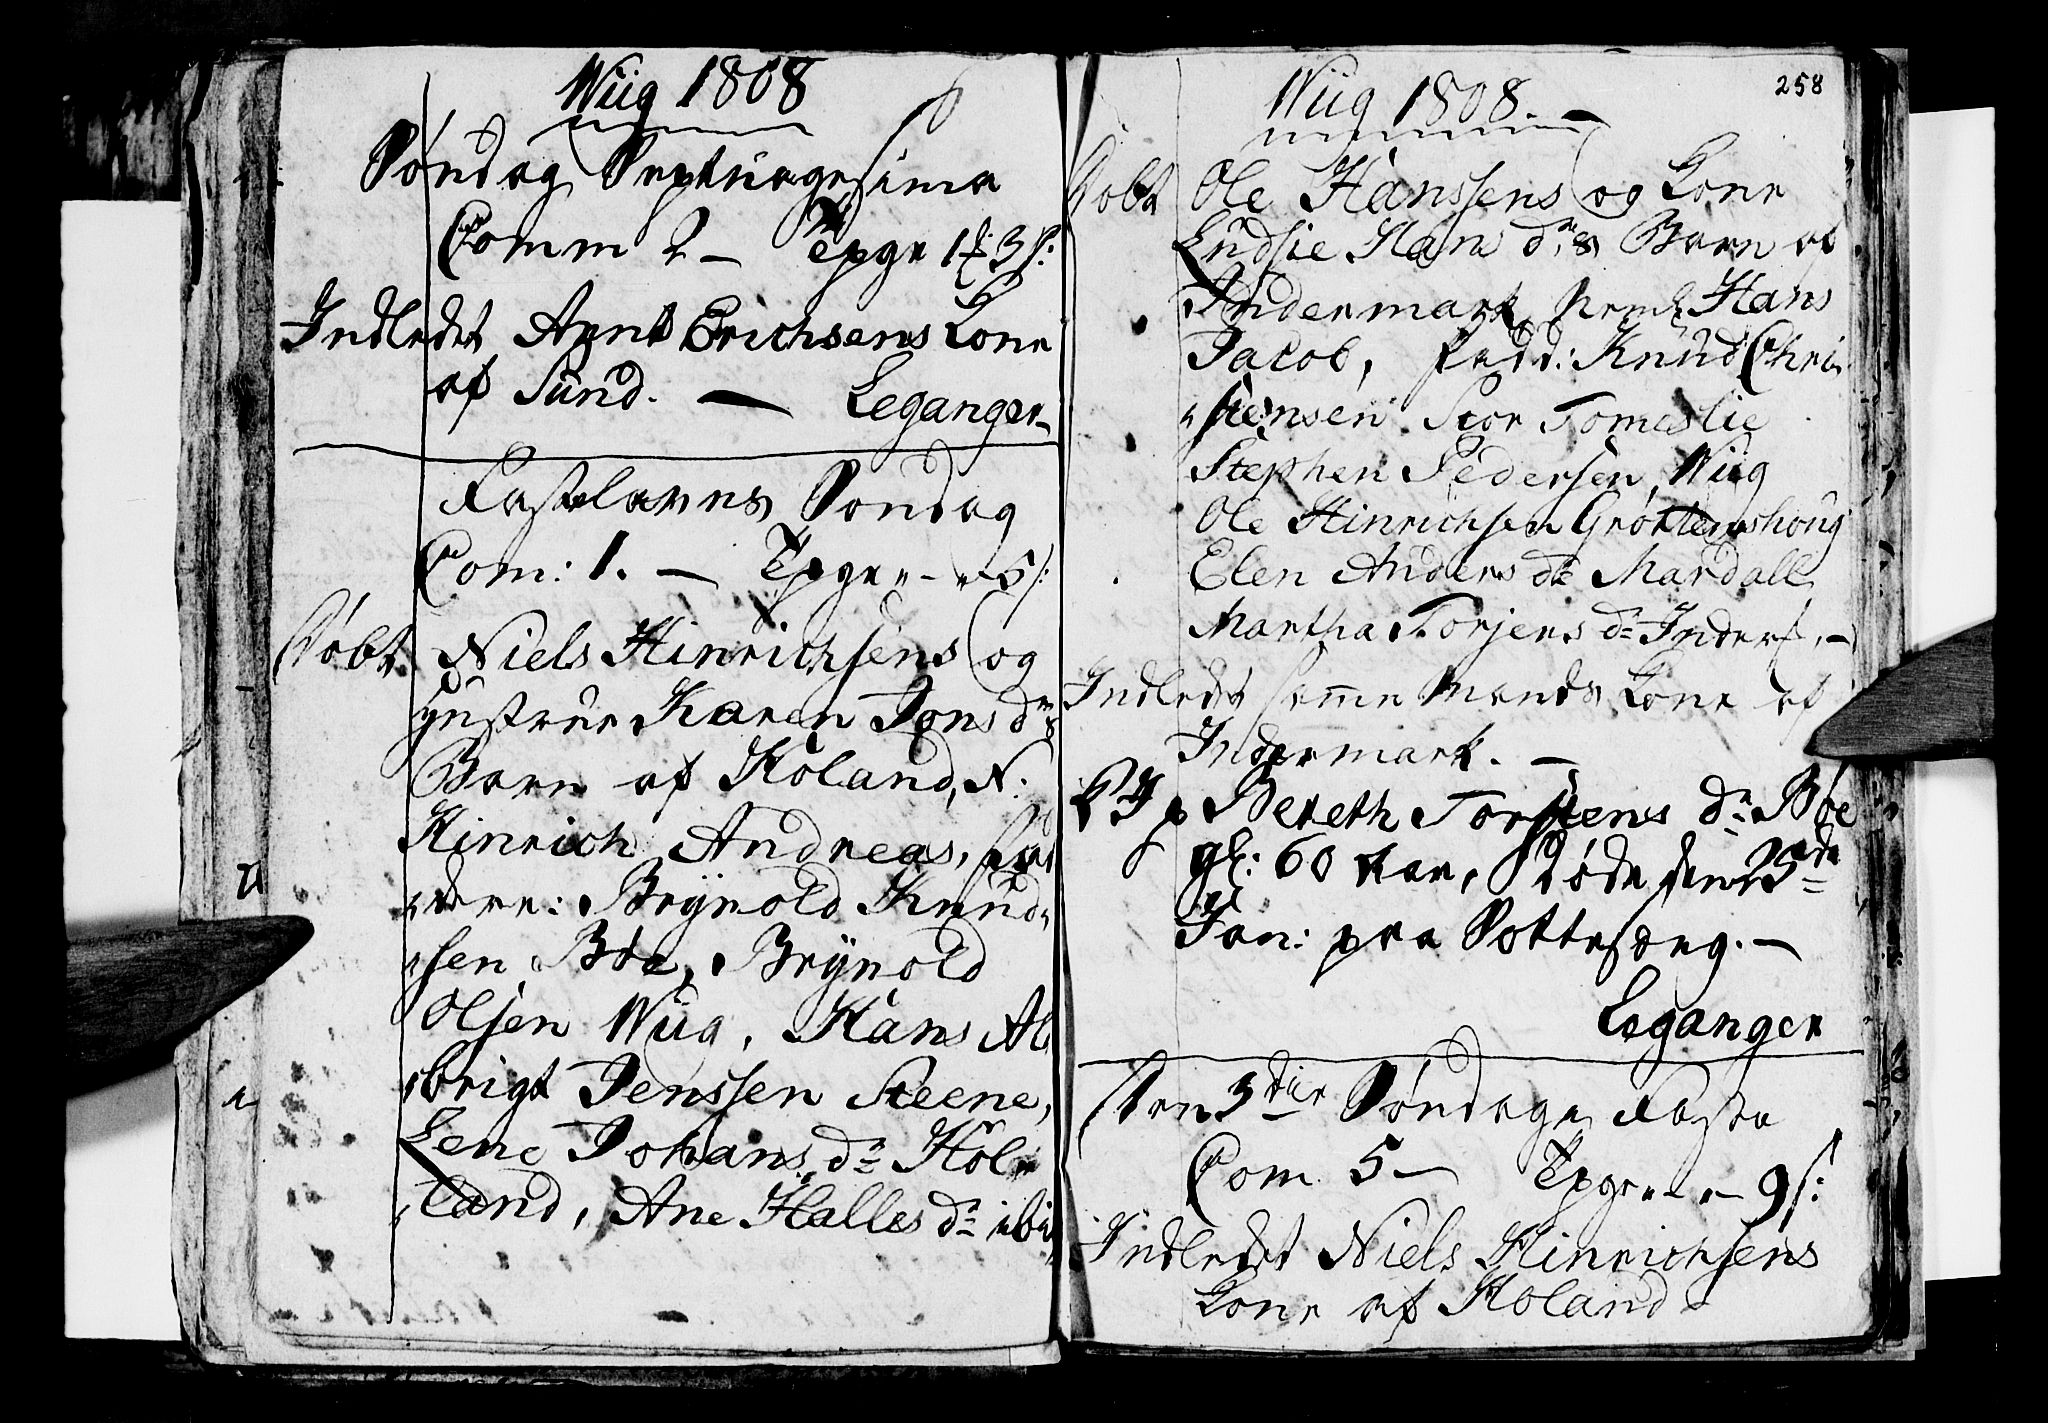 Wiig 1808
Søndag Septuagesima
Comm 2 - Tpge 1 3 s:
Indledet Arnt Erichsens Kone
af Sund. — Leganger
Fastelavns Søndag
Com: 1. — Tpge „ - „ 5 s:
Døbt Niels Hinrichsens og
hustrue Karen Jons drs
Barn af Høland, N:
Hinrich Andreas, fad
„dere: Brÿnold Knud„
„sen Böe, Brÿnold
Olsen Wiig, Hans Al„
„brigt Jenssen Steene,
Lene Johans dr Höl„
„land, Ane Halles dr ibid
258
Wiig 1808. —
Døbt Ole Hanssens og Kone
Hans drs Barn af
Indermark, neml Hans
Jacob, fadd: Knud Chri
„stensen Stor Tomeslie
Stephen Pedersen, Wiig
Ole Hinrichsen
Elen Anders dr Mardall
Martha Torjens dr Inderm, —
Indledet samme Mands Kone af
Indermark. —
Bereth Torstens dr Böe
gl: 60 Aar, døde den 25de
Jan: paa Sottesæng. —
Leganger
Den 3die Søndag i Faste
Com 5 — Tpge „ - „ - 9 s:
Indledet Niels Hinrichsens
Kone af Höland